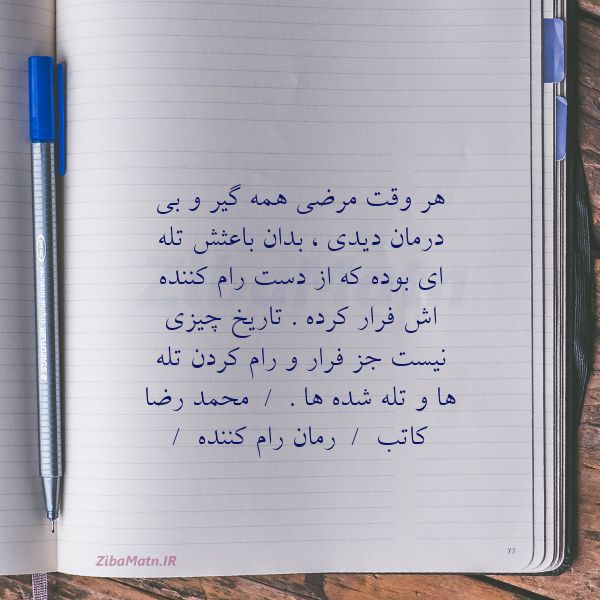 هر وقت مرضی همه گیر و بی
درمان دیدی ، بدان باعثش تله
ای بوده که از دست رام کننده
اش فرار کرده . تاریخ چیزی
نیست جز فرار و رام کردن تله
ها و تله شده ها . / محمد رضا
کاتب / رمان رام کننده /
77
ZibaMatn.IR